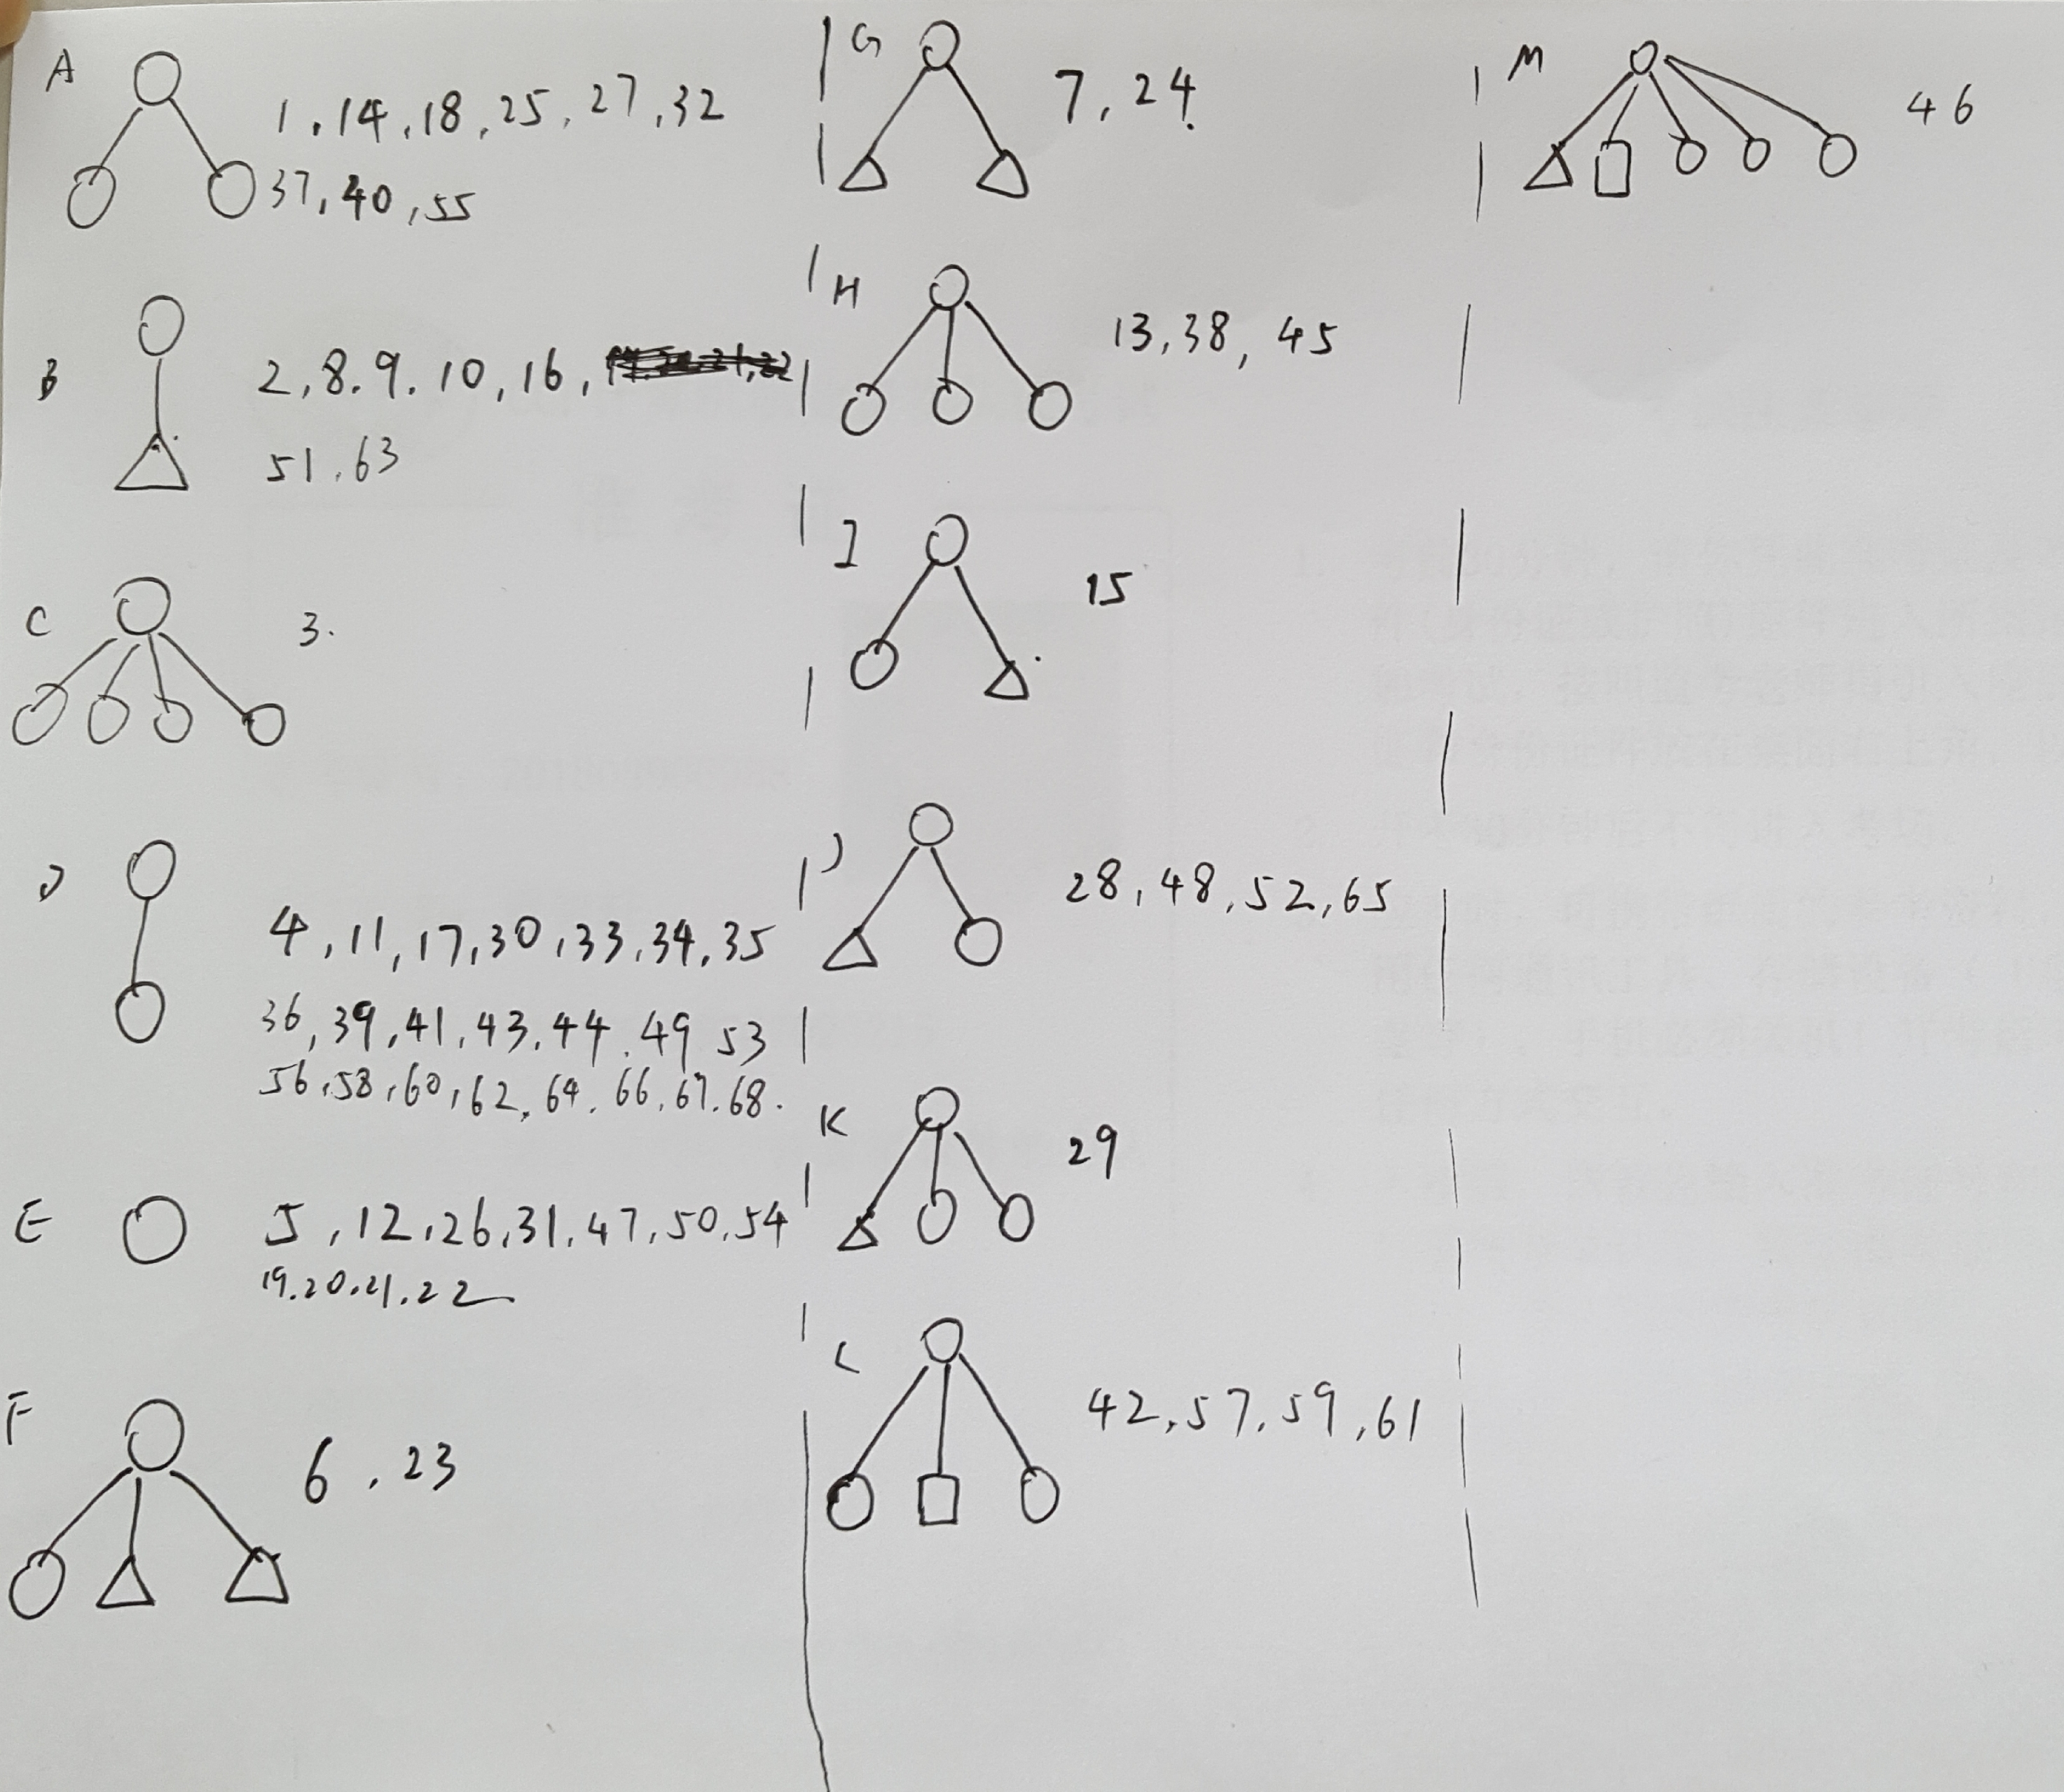 A
1.14,18,25,27,32
37,40,55
B
2,8.9.10,16,
51.63
C
3.
D
4,11,17,30,33,34,35
36,39,41,43,44.49 53
56,58,60,62,64.66,67.68.
E
5,12,26,31,47,50,54
19.20.21.22
F
6.23
G
7,24.
H
13,38,45
I
15
J
28,48,52,65
K
29
L
42,57,59,61
M
46